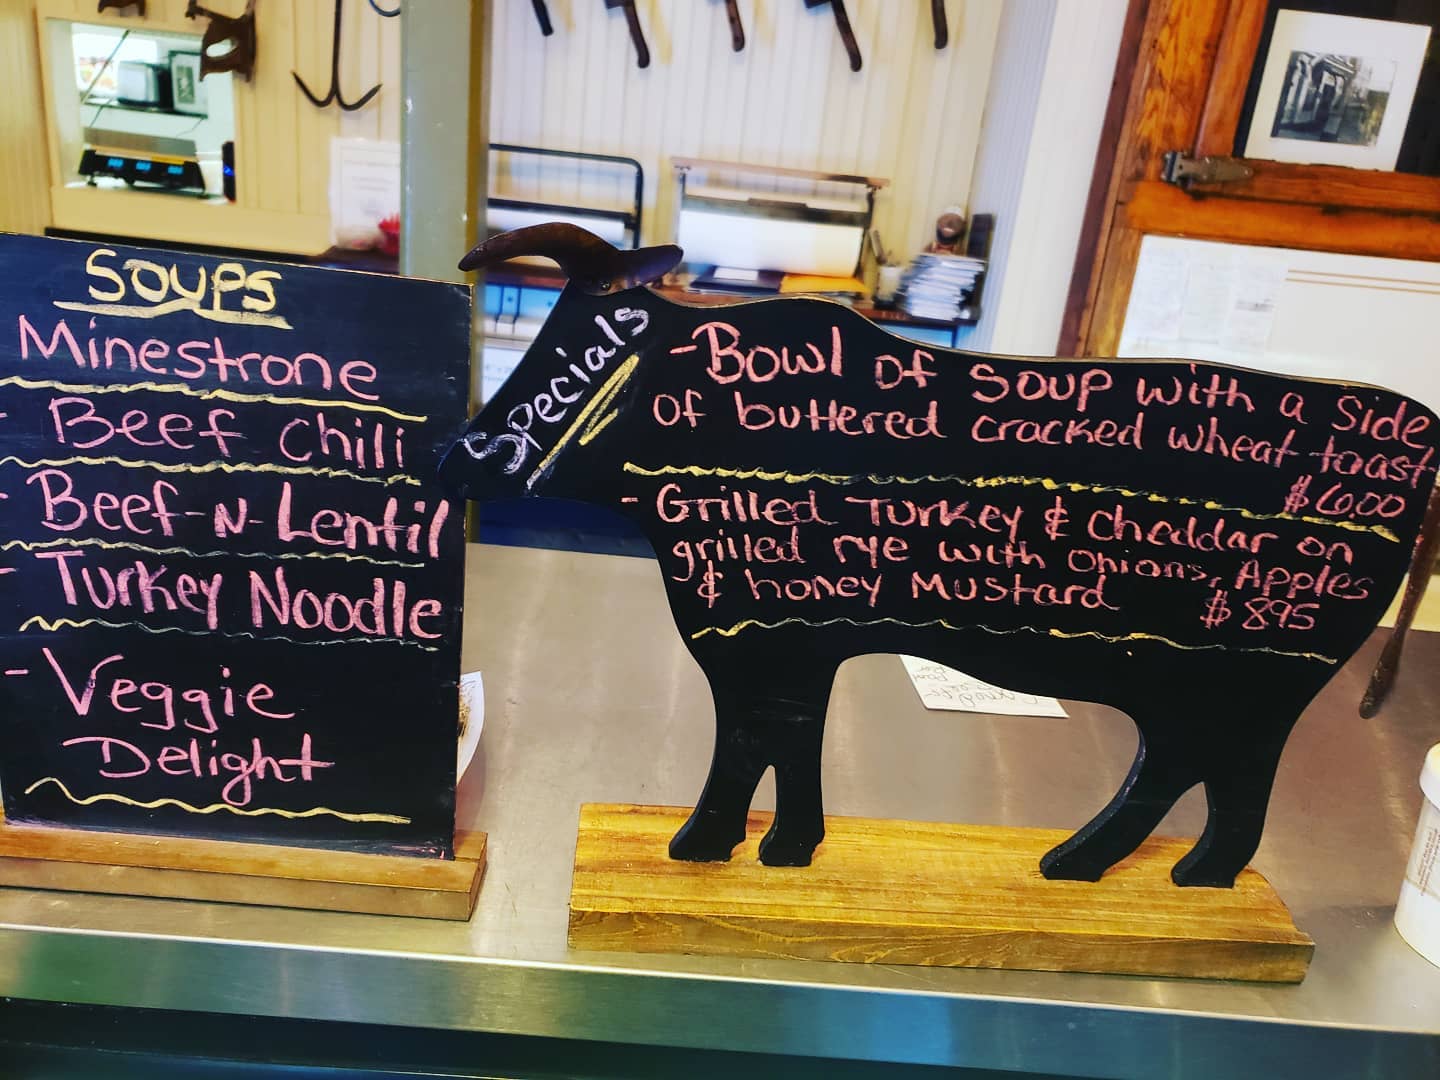 Soups
Minestrone
- Beef Chili
- Beef-N-Lentil
- Turkey Noodle
- Veggie
Delight
Specials
- Bowl of soup with a side
of buttered cracked wheat toast
$6.00
- Grilled Turkey & Cheddar on
grilled rye with Onions, Apples
& honey Mustard $895